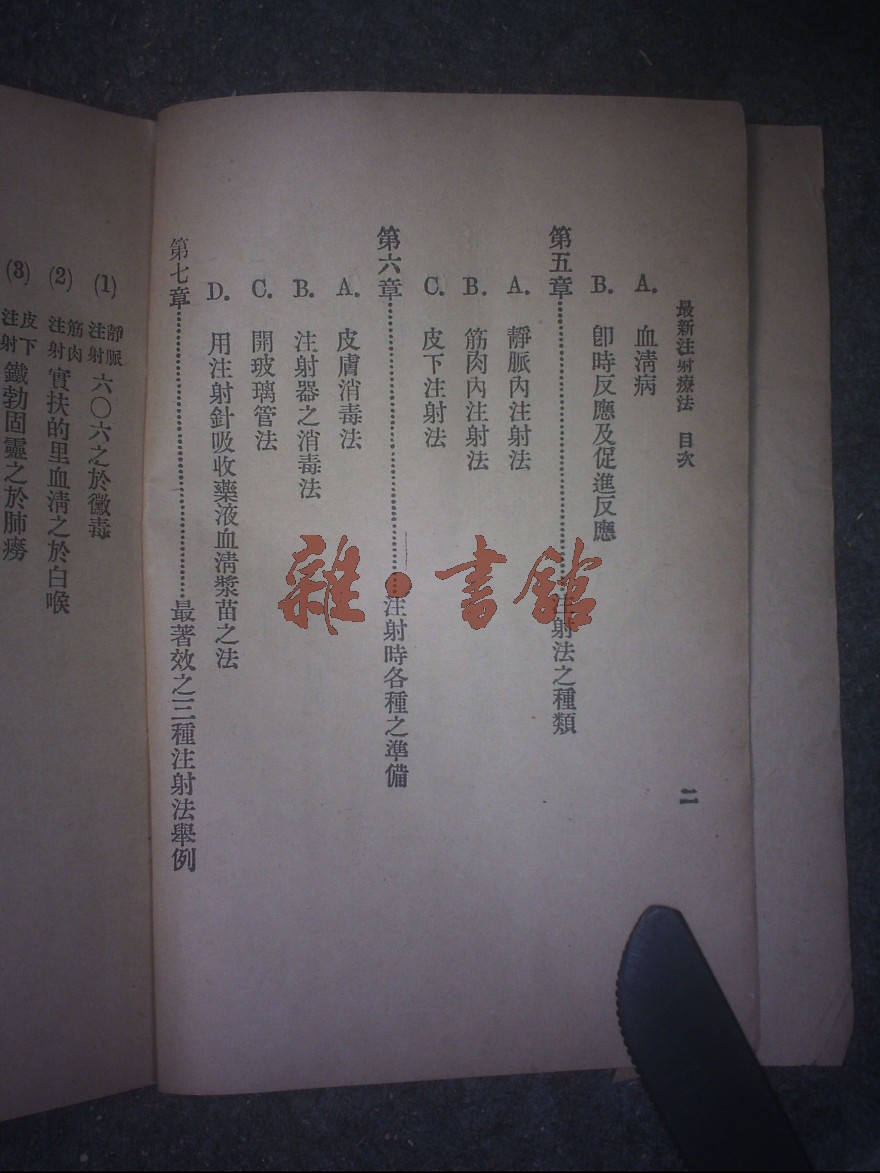 最新注射療法 目次 二
A. 血淸病
B. 卽時反應及促進反應
第五章……注射法之種類
A. 靜脈內注射法
B. 筋肉內注射法
C. 皮下注射法
第六章……注射時各種之準備
A. 皮膚消毒法
B. 注射器之消毒法
C. 開玻璃管法
D. 用注射針吸收藥液血淸漿苗之法
第七章……最著效之三種注射法舉例
(1) 靜脈注射 六〇六之於黴毒
(2) 筋肉注射 實扶的里血淸之於白喉
(3) 皮下注射 鐵勃固靈之於肺癆
雜·書館